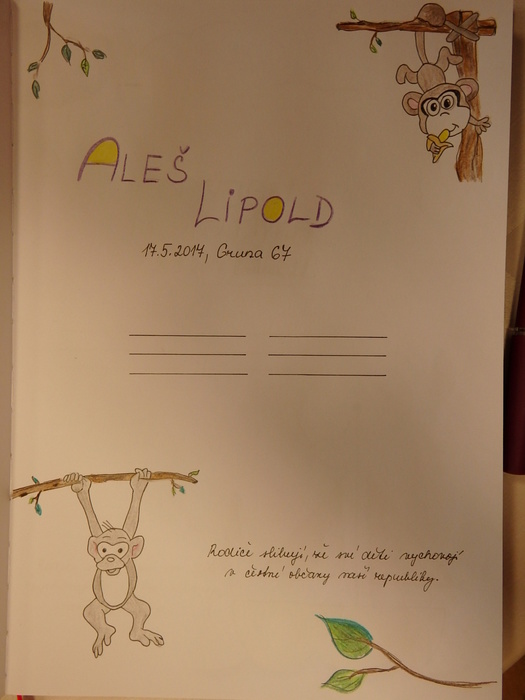 ALEŠ
LIPOLD
17.5.2017, Gruna 67
Rodiče slibují, že své děti vychovají
v čestné občany naší republiky.